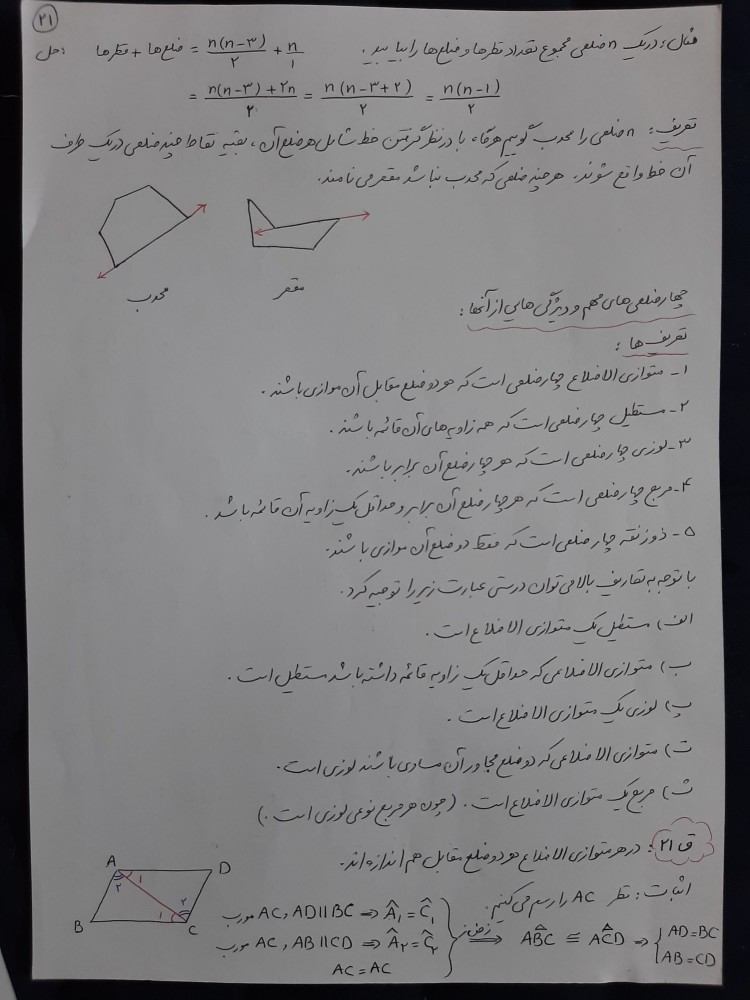 ۲۱
مثال: در یک n ضلعی مجموع تعداد قطرها و ضلع‌ها را بیابید.
حل: قطرها + ضلع‌ها = n(n-۳)/۲ + n/۱
= n(n-۳)+۲n/۲ = n(n-۳+۲)/۲ = n(n-۱)/۲
تعریف: n ضلعی را محدب گوییم هرگاه، با در نظر گرفتن خط شامل هر ضلع آن، بقیه نقاط چند ضلعی در یک طرف
آن خط واقع شوند. هر چند ضلعی که محدب نباشد مقعر می نامند.
محدب
مقعر
چهارضلعی‌های مهم و ویژگی هایی از آنها:
تعریف ها:
۱- متوازی الاضلاع چهارضلعی است که هر دو ضلع مقابل آن موازی باشند.
۲- مستطیل چهارضلعی است که همه زاویه های آن قائمه باشند.
۳- لوزی چهارضلعی است که هر چهار ضلع آن برابر باشند.
۴- مربع چهارضلعی است که هر چهار ضلع آن برابر و حداقل یک زاویه آن قائمه باشد.
۵- ذوزنقه چهارضلعی است که فقط دو ضلع آن موازی باشند.
با توجه به تعاریف بالا می توان درستی عبارت زیر را توجیه کرد.
الف) مستطیل یک متوازی الاضلاع است.
ب) متوازی الاضلاعی که حداقل یک زاویه قائمه داشته باشد مستطیل است.
پ) لوزی یک متوازی الاضلاع است.
ت) متوازی الاضلاعی که دو ضلع مجاور آن مساوی باشند لوزی است.
ث) مربع یک متوازی الاضلاع است. (چون هر مربع نوعی لوزی است.)
ق ۲۱: در هر متوازی الاضلاع هر دو ضلع مقابل هم اندازه اند.
اثبات: قطر AC را رسم می کنیم.
A D B C ۱ ۲ ۱ ۲
AD∥BC ، AC مورب ⇒ Â₁ = Ĉ₁
AB∥CD ، AC مورب ⇒ Â₂ = Ĉ₂
AC = AC
ز ض ز ⇒ ABC ≅ ACD ⇒ { AD=BC
AB=CD